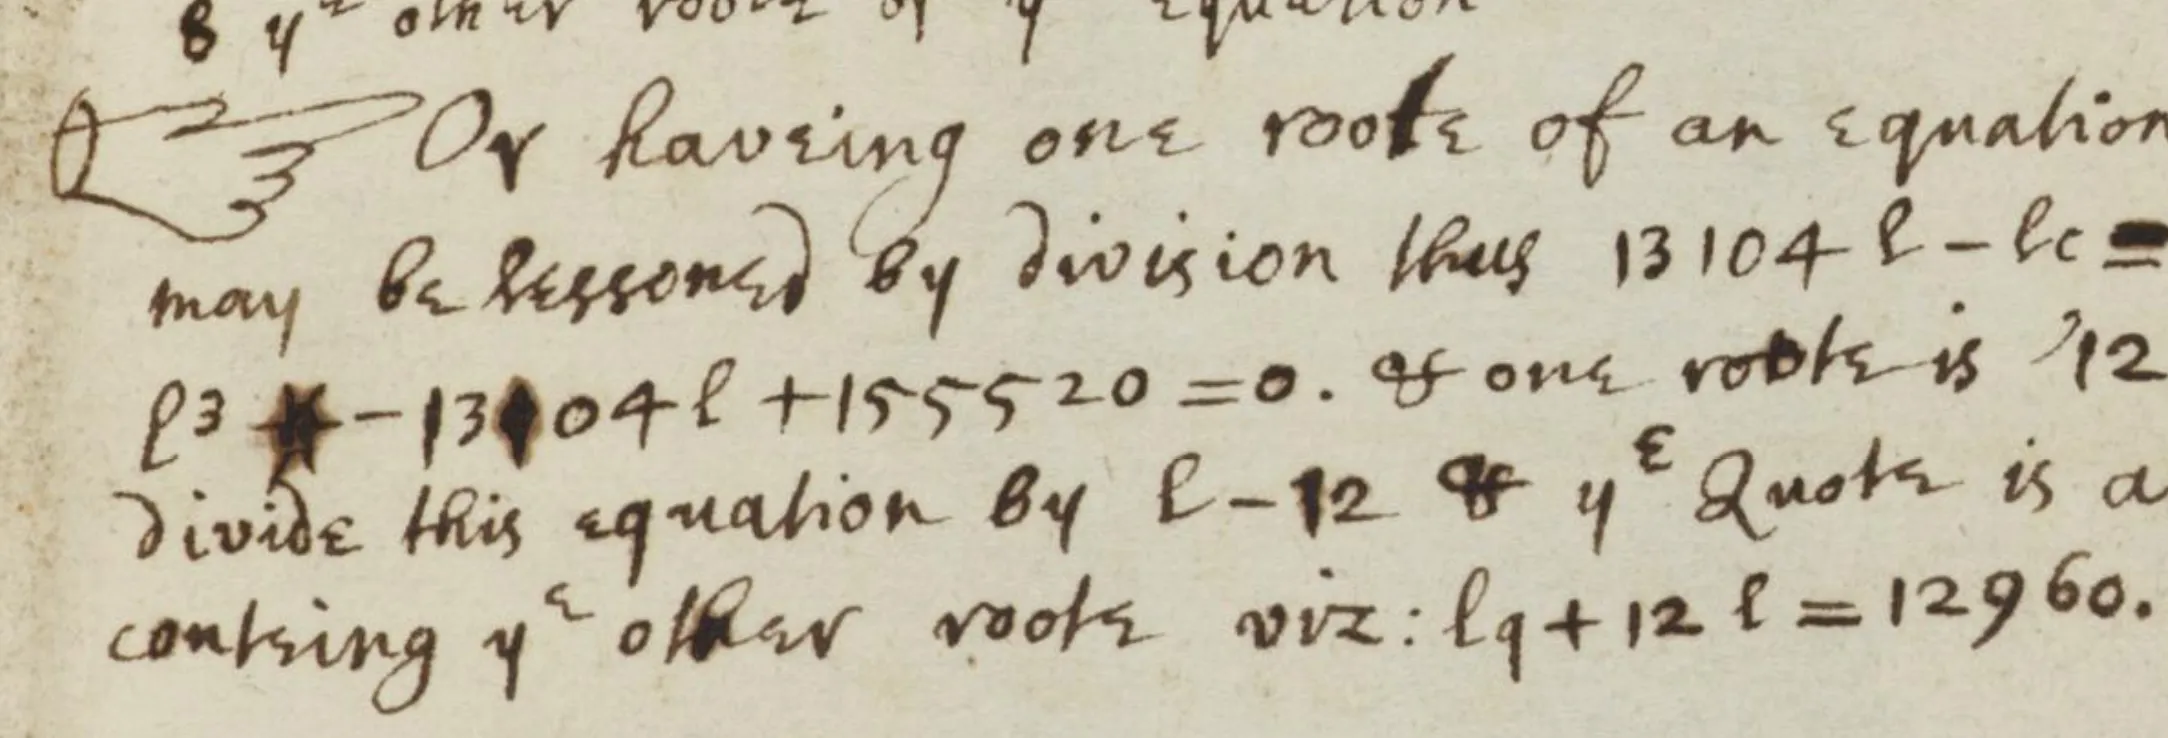 & yᵉ other roote of yᵉ equation
Or haveing one roote of an equation
may be lessoned by division thus 13104 l - lc =
l3 * - 13104 l + 155520 = 0. & one roote is 12
divide this equation by l - 12 & yᵉ Quote is a
conteing yᵉ other roote viz: lq + 12 l = 12960.